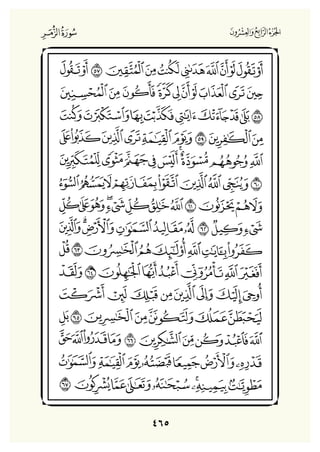 الجزء الرابع والعشرون
سورة الزمر
أَوْ تَقُولَ لَوْ أَنَّ ٱللَّهَ هَدَىٰنِى لَكُنتُ مِنَ ٱلْمُتَّقِينَ ٥٧ أَوْ تَقُولَ
حِينَ تَرَى ٱلْعَذَابَ لَوْ أَنَّ لِى كَرَّةً فَأَكُونَ مِنَ ٱلْمُحْسِنِينَ
٥٨ بَلَىٰ قَدْ جَآءَتْكَ ءَايَـٰتِى فَكَذَّبْتَ بِهَا وَٱسْتَكْبَرْتَ وَكُنتَ
مِنَ ٱلْكَـٰفِرِينَ ٥٩ وَيَوْمَ ٱلْقِيَـٰمَةِ تَرَى ٱلَّذِينَ كَذَبُوا۟ عَلَى
ٱللَّهِ وُجُوهُهُم مُّسْوَدَّةٌ ۚ أَلَيْسَ فِى جَهَنَّمَ مَثْوًى لِّلْمُتَكَبِّرِينَ
٦٠ وَيُنَجِّى ٱللَّهُ ٱلَّذِينَ ٱتَّقَوْا۟ بِمَفَازَتِهِمْ لَا يَمَسُّهُمُ ٱلسُّوٓءُ
وَلَا هُمْ يَحْزَنُونَ ٦١ ٱللَّهُ خَـٰلِقُ كُلِّ شَىْءٍ ۖ وَهُوَ عَلَىٰ كُلِّ
شَىْءٍ وَكِيلٌ ٦٢ لَّهُۥ مَقَالِيدُ ٱلسَّمَـٰوَٰتِ وَٱلْأَرْضِ ۗ وَٱلَّذِينَ
كَفَرُوا۟ بِـَٔايَـٰتِ ٱللَّهِ أُو۟لَـٰٓئِكَ هُمُ ٱلْخَـٰسِرُونَ ٦٣ قُلْ
أَفَغَيْرَ ٱللَّهِ تَأْمُرُوٓنِّىٓ أَعْبُدُ أَيُّهَا ٱلْجَـٰهِلُونَ ٦٤ وَلَقَدْ
أُوحِىَ إِلَيْكَ وَإِلَى ٱلَّذِينَ مِن قَبْلِكَ لَئِنْ أَشْرَكْتَ
لَيَحْبَطَنَّ عَمَلُكَ وَلَتَكُونَنَّ مِنَ ٱلْخَـٰسِرِينَ ٦٥ بَلِ
ٱللَّهَ فَٱعْبُدْ وَكُن مِّنَ ٱلشَّـٰكِرِينَ ٦٦ وَمَا قَدَرُوا۟ ٱللَّهَ حَقَّ
قَدْرِهِۦ وَٱلْأَرْضُ جَمِيعًا قَبْضَتُهُۥ يَوْمَ ٱلْقِيَـٰمَةِ وَٱلسَّمَـٰوَٰتُ
مَطْوِيَّـٰتٌۢ بِيَمِينِهِۦ ۚ سُبْحَـٰنَهُۥ وَتَعَـٰلَىٰ عَمَّا يُشْرِكُونَ ٦٧
٤٦٥